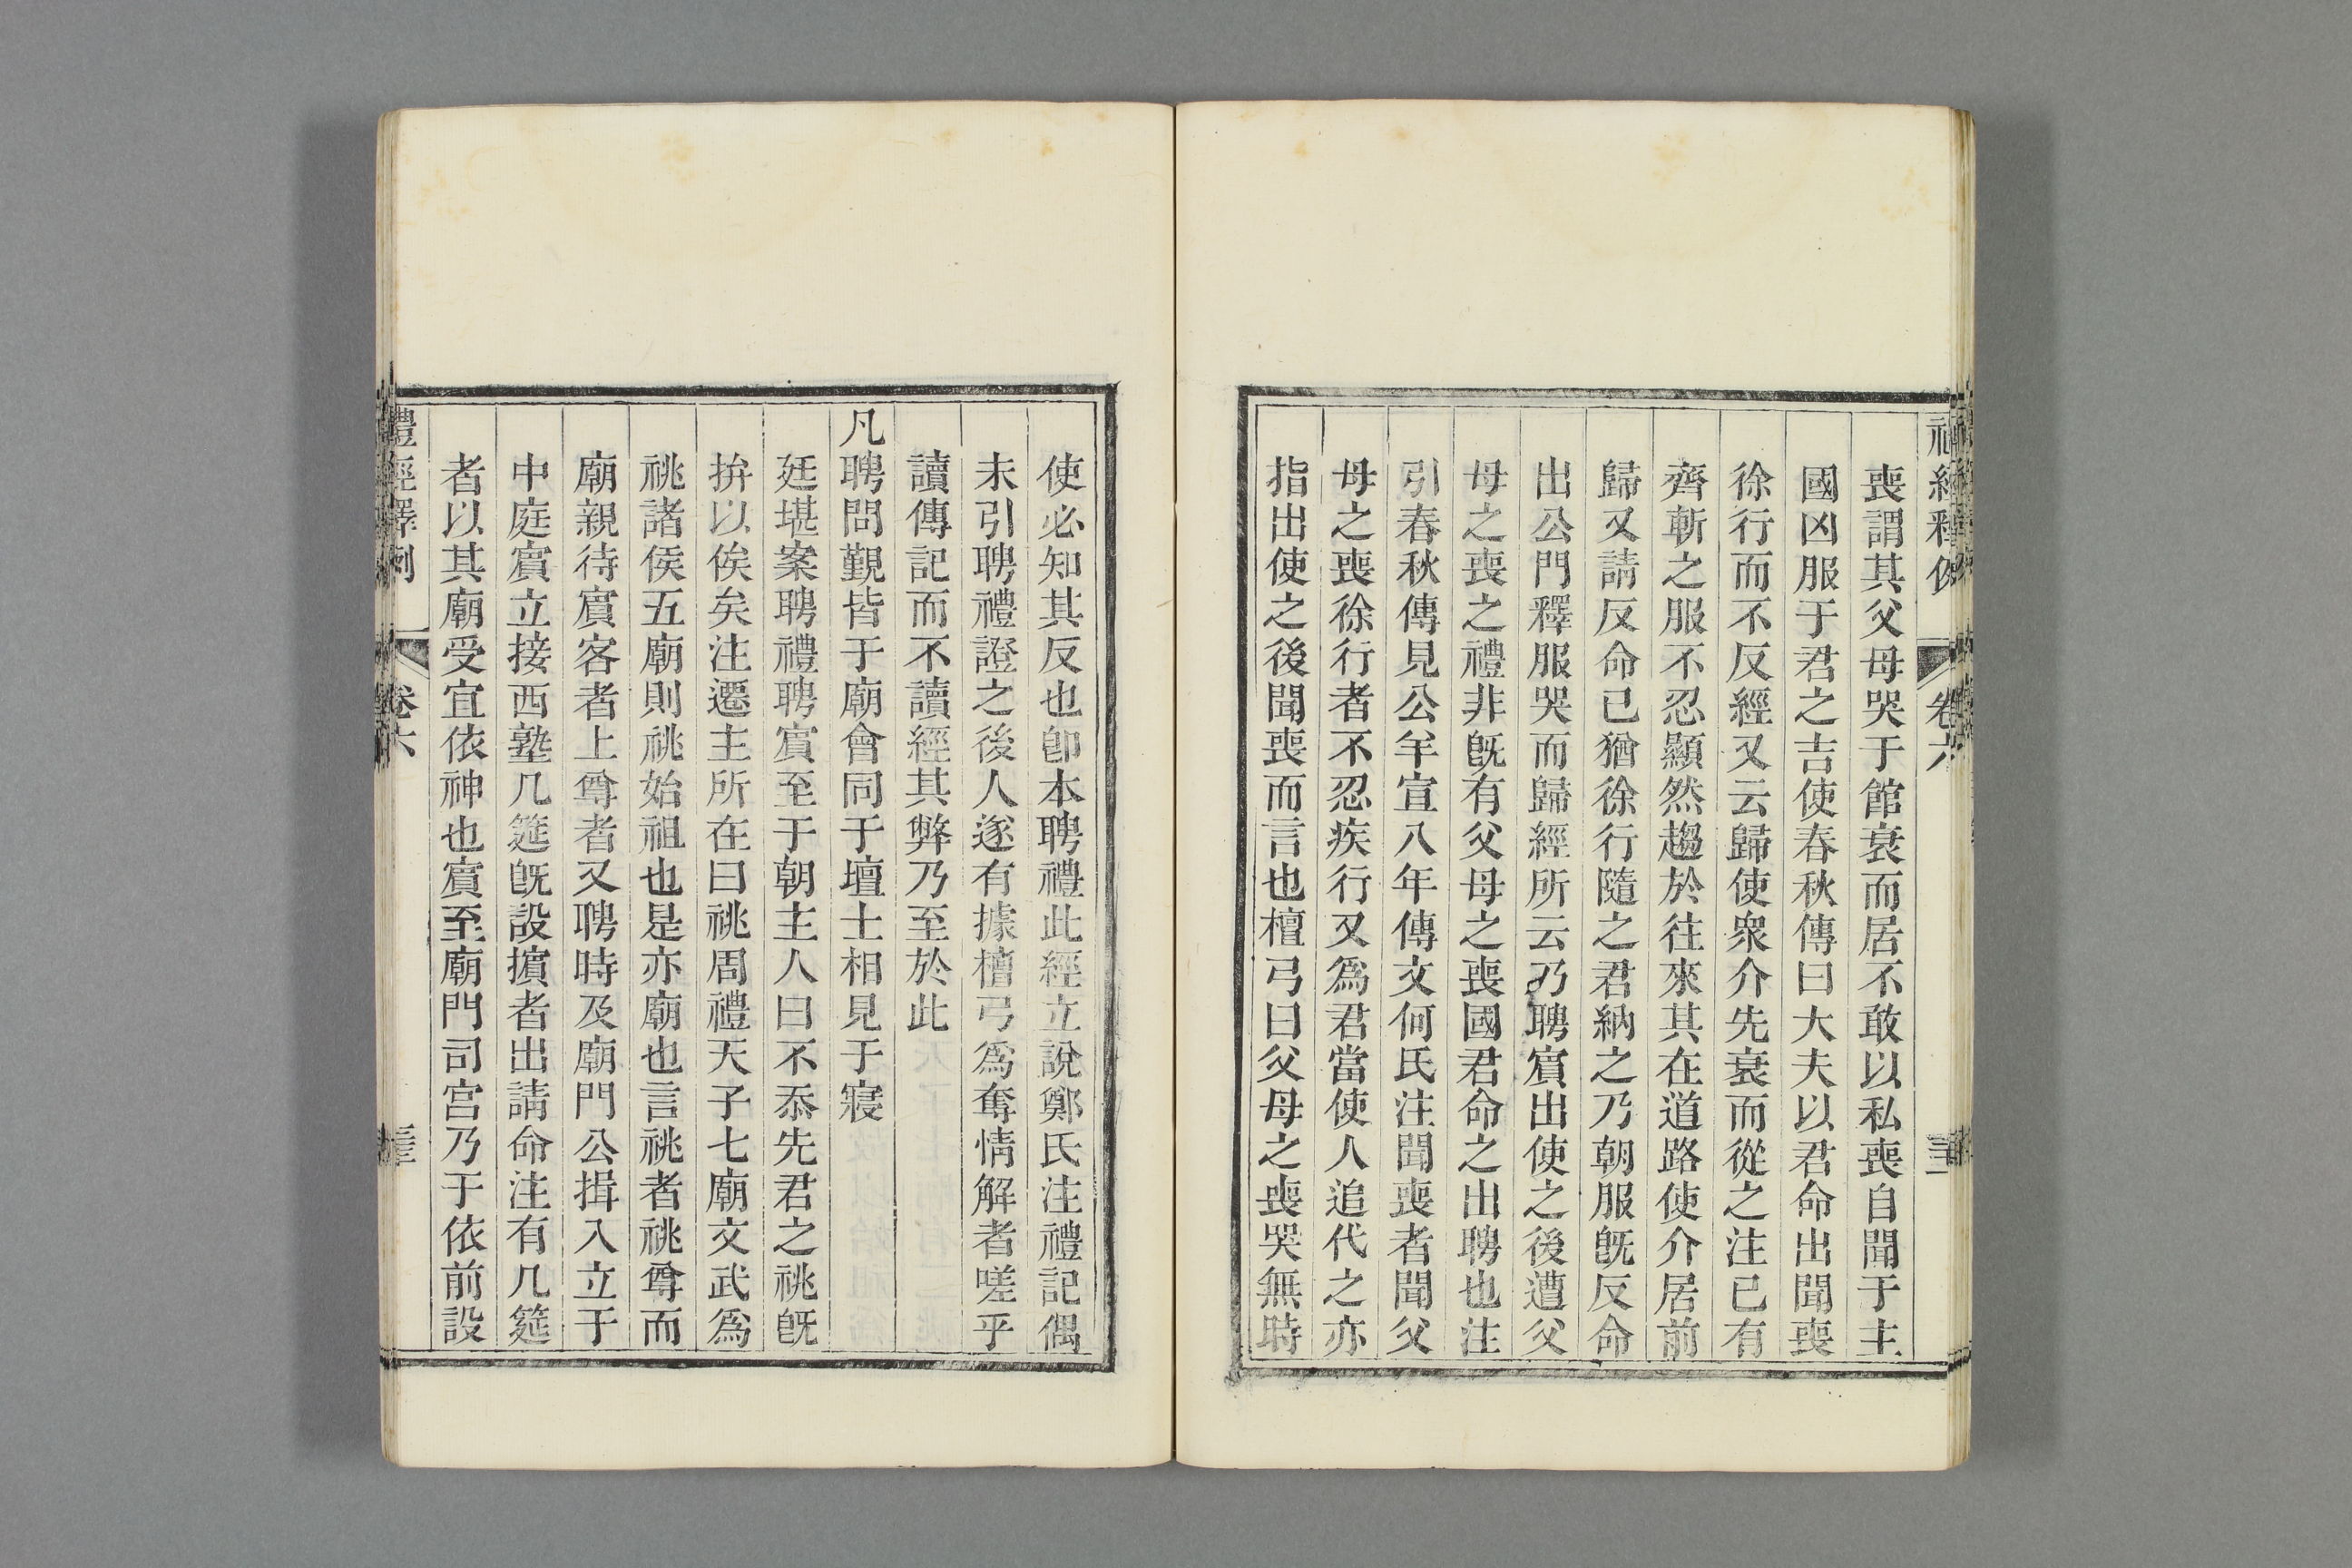 禮經釋例 卷六
喪謂其父母哭于館衰而居不敢以私喪自聞于主
國凶服于君之吉使春秋傳曰大夫以君命出聞喪
徐行而不反經又云歸使衆介先衰而從之注已有
齊斬之服不忍顯然趨於往來其在道路使介居前
歸又請反命已猶徐行隨之君納之乃朝服旣反命
出公門釋服哭而歸經所云乃聘賔出使之後遭父
母之喪之禮非旣有父母之喪國君命之出聘也注
引春秋傳見公羊宣八年傳文何氏注聞喪者聞父
母之喪徐行者不忍疾行又爲君當使人追代之亦
指出使之後聞喪而言也檀弓曰父母之喪哭無時
使必知其反也卽本聘禮此經立說鄭氏注禮記偶
未引聘禮證之後人遂有據檀弓爲奪情解者嗟乎
讀傳記而不讀經其弊乃至於此
凡聘問覲皆于廟會同于壇士相見于寢
廷堪案聘禮聘賔至于朝主人曰不忝先君之祧旣
拚以俟矣注遷主所在曰祧周禮天子七廟文武爲
祧諸侯五廟則祧始祖也是亦廟也言祧者祧尊而
廟親待賔客者上尊者又聘時及廟門公揖入立于
中庭賔立接西塾几筵旣設擯者出請命注有几筵
者以其廟受宜依神也賔至廟門司宮乃于依前設
禮經釋例 卷六